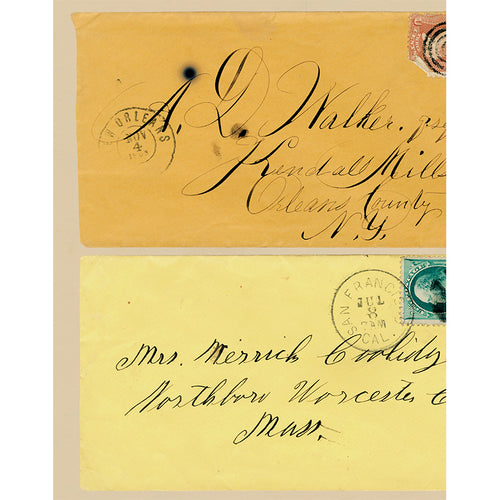 N ORLEANS
NOV
4
A. D. Walker. Esq
Kendall Mills
Orleans County
N.Y.
SAN FRANCISCO
JUL
8
AM
CAL.
Mrs. Merrick Coolidg
Northboro Worcester C
Mass.